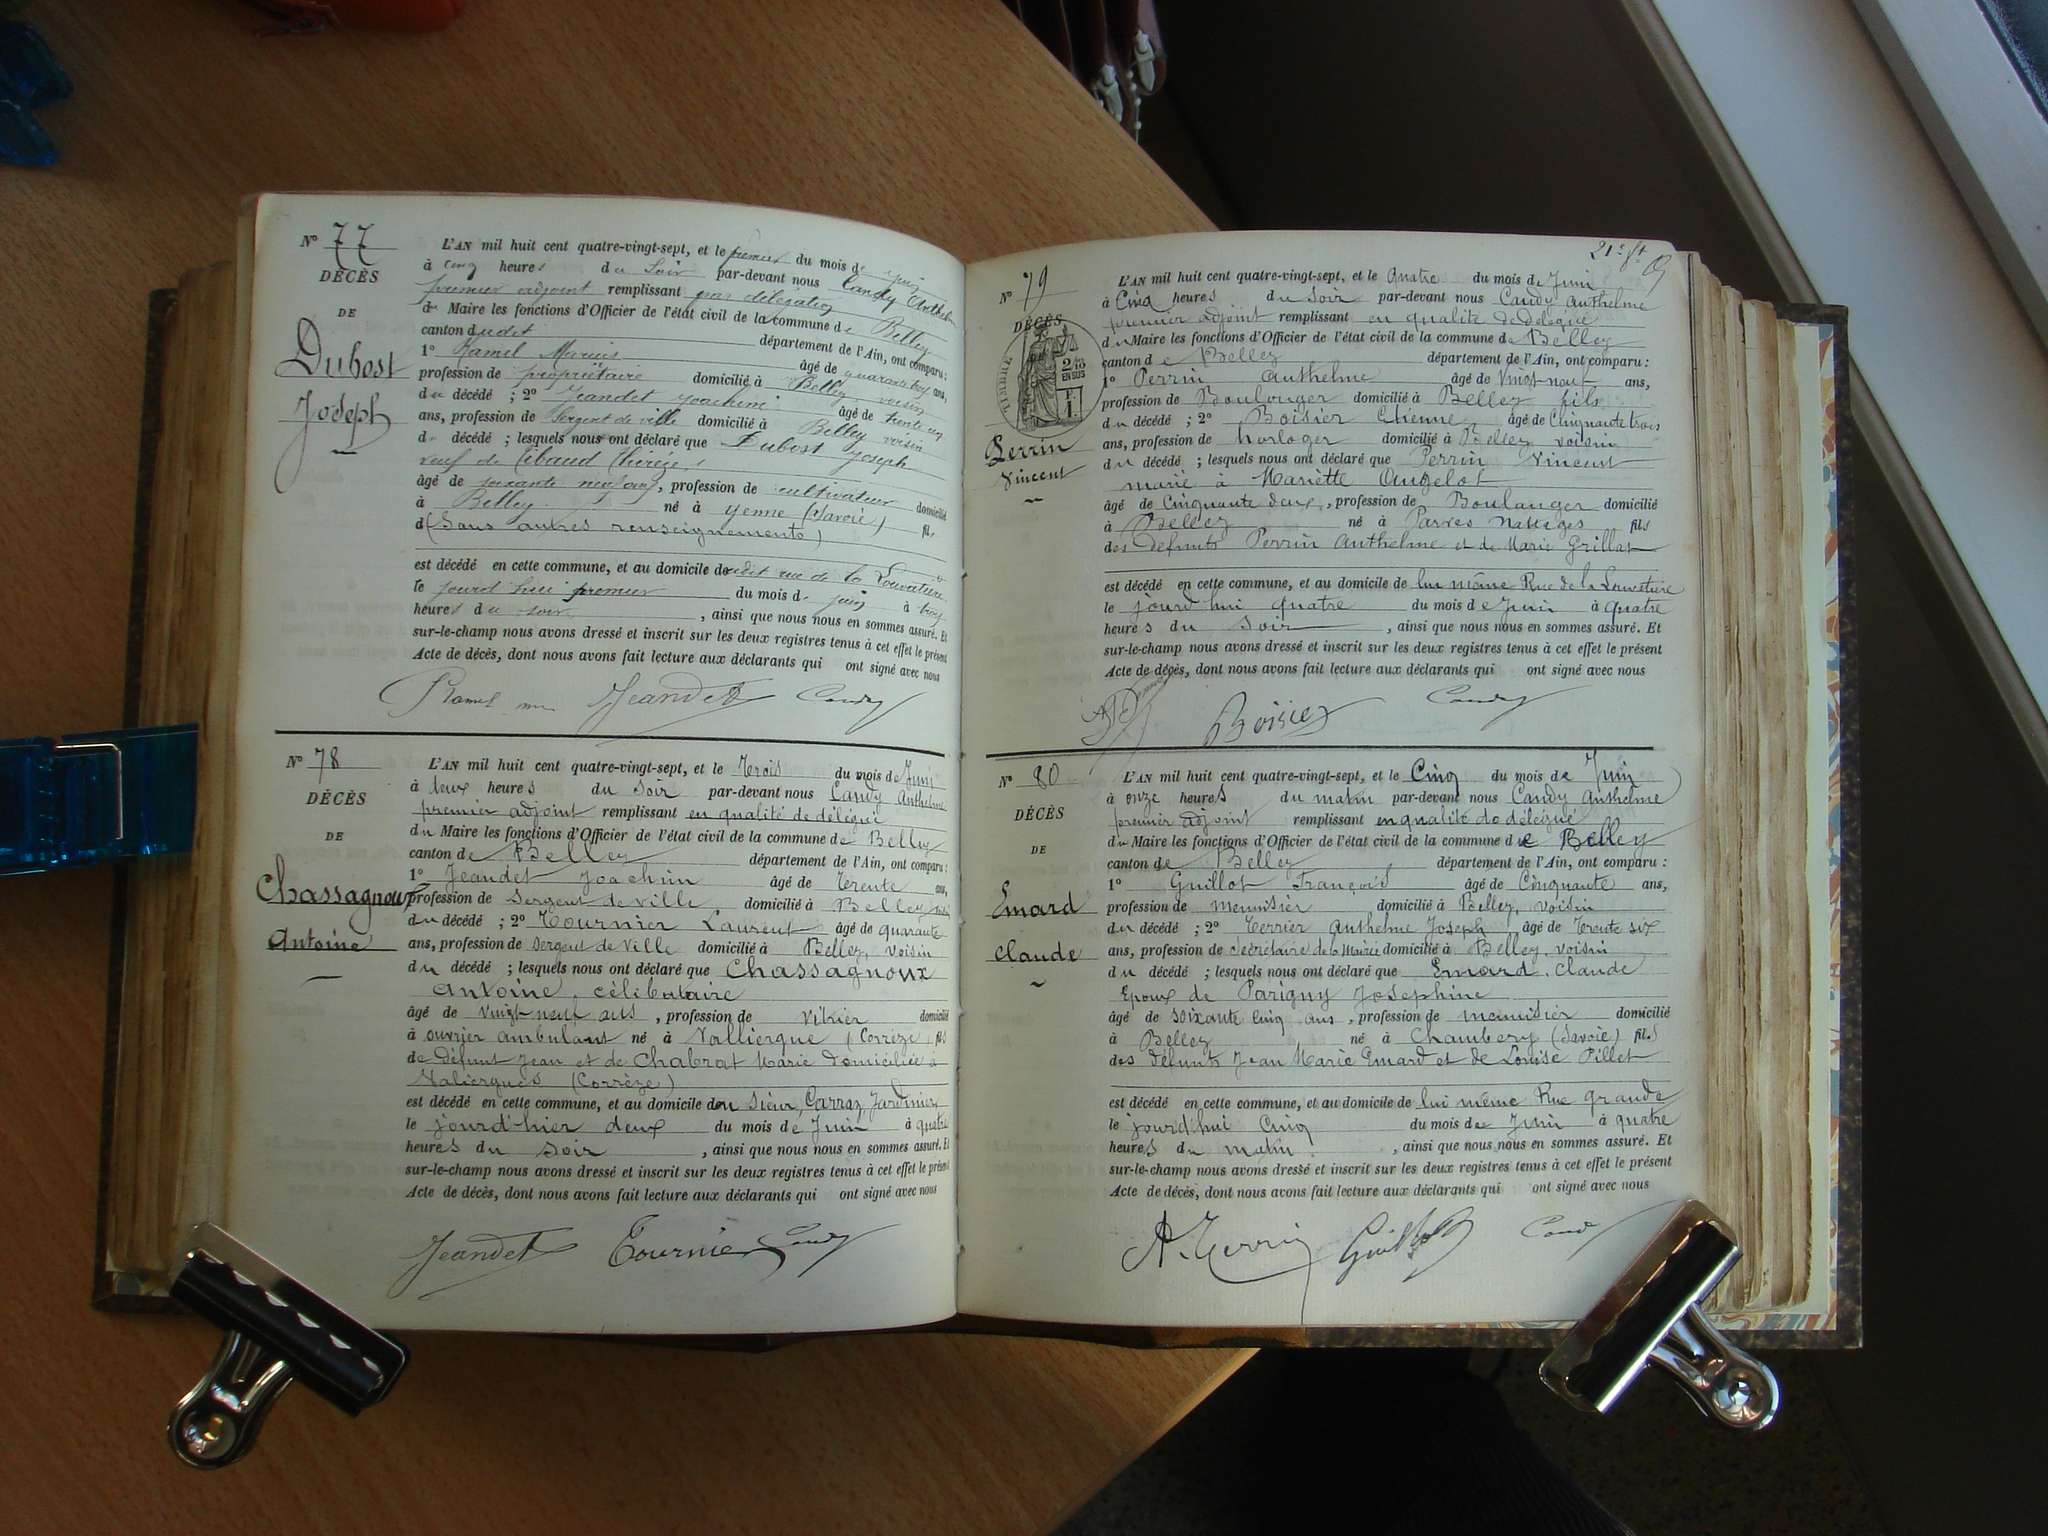 N° 77
DÉCÈS
DE
Dubost
Joseph
L'AN mil huit cent quatre-vingt-sept, et le premier du mois de juin
à cinq heures du Soir par-devant nous Candy Anthelme
premier adjoint remplissant par délégation
du Maire les fonctions d'Officier de l'état civil de la commune de Belley
canton dudit département de l'Ain, ont comparu :
1° Ramel Marius âgé de quarante trois ans,
profession de propriétaire domicilié à Belley, voisin
du décédé ; 2° Jeandet Joachim âgé de trente un
ans, profession de Sergent de ville domicilié à Belley voisin
du décédé ; lesquels nous ont déclaré que Dubost Joseph
veuf de Tibaud Thérèze
âgé de soixante neuf ans, profession de cultivateur domicilié
à Belley né à Yenne (Savoie) fils
d (Sans autres renseignements)
est décédé en cette commune, et au domicile dudit rue de la Louvatière
le jourd'hui premier du mois de juin à trois
heures du soir, ainsi que nous nous en sommes assuré. Et
sur-le-champ nous avons dressé et inscrit sur les deux registres tenus à cet effet le présent
Acte de décès, dont nous avons fait lecture aux déclarants qui ont signé avec nous
Ramel Jeandet Candy
N° 78
DÉCÈS
DE
Chassagnoux
Antoine
L'AN mil huit cent quatre-vingt-sept, et le Trois du mois de Juin
à deux heures du soir par-devant nous Candy Anthelme
premier adjoint remplissant en qualité de délégué
du Maire les fonctions d'Officier de l'état civil de la commune de Belley
canton de Belley département de l'Ain, ont comparu :
1° Jeandet Joachim âgé de Trente ans,
profession de Sergent de ville domicilié à Belley
du décédé ; 2° Tournier Laurent âgé de quarante
ans, profession de sergent de ville domicilié à Belley, voisin
du décédé ; lesquels nous ont déclaré que Chassagnoux
Antoine, célibataire
âgé de vingt-neuf ans, profession de vitrier domicilié
à ouvrier ambulant né à Vallierque (Corrèze) fils
de défunt Jean et de Chabrat Marie domiciliée à
Valiergues (Corrèze)
est décédé en cette commune, et au domicile du sieur Carraz, Jardinier
le jourd'hier deux du mois de Juin à quatre
heures du soir, ainsi que nous nous en sommes assuré. Et
sur-le-champ nous avons dressé et inscrit sur les deux registres tenus à cet effet le présent
Acte de décès, dont nous avons fait lecture aux déclarants qui ont signé avec nous
Jeandet Tournier Candy
21e ft
N° 79
DÉCÈS
TIMBRE
2/10
EN SUS
F.
1.
Perrin
Vincent
L'AN mil huit cent quatre-vingt-sept, et le Quatre du mois de Juin
à Cinq heures du Soir par-devant nous Candy Anthelme
premier adjoint remplissant en qualité de délégué
du Maire les fonctions d'Officier de l'état civil de la commune de Belley
canton de Belley département de l'Ain, ont comparu :
1° Perrin Anthelme âgé de vingt-neuf ans,
profession de Boulanger domicilié à Belley fils
du décédé ; 2° Boisier Etienne âgé de Cinquante trois
ans, profession de horloger domicilié à Belley voisin
du décédé ; lesquels nous ont déclaré que Perrin Vincent
marié à Mariette Angelot
âgé de Cinquante deux, profession de Boulanger domicilié
à Belley né à Parves Nattages fils
des défunts Perrin Anthelme et de Marie Grillat
est décédé en cette commune, et au domicile de lui même Rue de la Louvatière
le jourd'hui quatre du mois de Juin à quatre
heures du soir, ainsi que nous nous en sommes assuré. Et
sur-le-champ nous avons dressé et inscrit sur les deux registres tenus à cet effet le présent
Acte de décès, dont nous avons fait lecture aux déclarants qui ont signé avec nous
Boisier Candy
N° 80
DÉCÈS
DE
Emard
Claude
L'AN mil huit cent quatre-vingt-sept, et le Cinq du mois de Juin
à onze heures du matin par-devant nous Candy Anthelme
premier adjoint remplissant en qualité de délégué
du Maire les fonctions d'Officier de l'état civil de la commune de Belley
canton de Belley département de l'Ain, ont comparu :
1° Guillot François âgé de Cinquante ans,
profession de menuisier domicilié à Belley, voisin
du décédé ; 2° Terrier Anthelme Joseph âgé de Trente six
ans, profession de Secrétaire de la Mairie domicilié à Belley, voisin
du décédé ; lesquels nous ont déclaré que Emard, Claude
Epoux de Parigny Joséphine
âgé de soixante cinq ans, profession de menuisier domicilié
à Belley né à Chambery (Savoie) fils
des défunts Jean Marie Emard et de Louise Pillet
est décédé en cette commune, et au domicile de lui même Rue grande
le jourd'hui Cinq du mois de Juin à quatre
heures du matin, ainsi que nous nous en sommes assuré. Et
sur-le-champ nous avons dressé et inscrit sur les deux registres tenus à cet effet le présent
Acte de décès, dont nous avons fait lecture aux déclarants qui ont signé avec nous
A. Terrier Guillot Candy